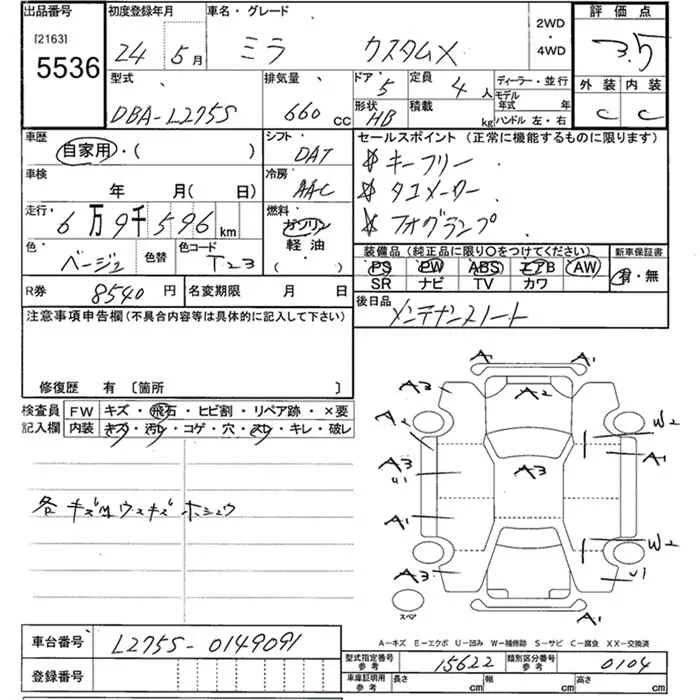 出品番号 初度登録年月 車名・グレード 2WD・4WD 評価点
[2163] 5536 24年 5月 ミラ カスタムX 3.5
型式 排気量 ドア 5 定員 4人 ディーラー・並行 外装 内装
DBA-L275S 660cc 形状 HB 積載 kg モデル年式 年 ハンドル 左・右 C C
車歴 シフト セールスポイント (正常に機能するものに限ります)
自家用・( ) DAT キーフリー
車検 年 月(日) 冷房 AAC タコメーター
走行 6万9千596km 燃料 ガソリン フォグランプ
色 ベージュ 色替 色コード T23 軽油 ( ) 装備品 (純正品に限り○をつけてください) 新車保証書
PS PW ABS エアB AW 有・無
SR ナビ TV カワ
R券 8540円 名変期限 月 日 後日品 メンテナンスノート
注意事項申告欄(不具合内容等は具体的に記入して下さい)
修復歴 有 〔箇所 〕
検査員 FW キズ・飛石・ヒビ割・リペア跡・×要
記入欄 内装 キズ・汚レ・コゲ・穴・スレ・キレ・破レ
各 キズ ウスキズ ホシュウ
A1 A1
A3 A2 W2
A2 A1
A3 U1 A3
A1 W2
A3 U1
スペア A1
A-キズ E-エクボ U-凹み W-補修跡 S-サビ C-腐食 XX-交換済
車台番号 L275S-0149091
型式指定番号 参考 15622 類別区分番号 参考 0104
登録番号 車庫証明用 参考 長さ cm 幅 cm 高さ cm